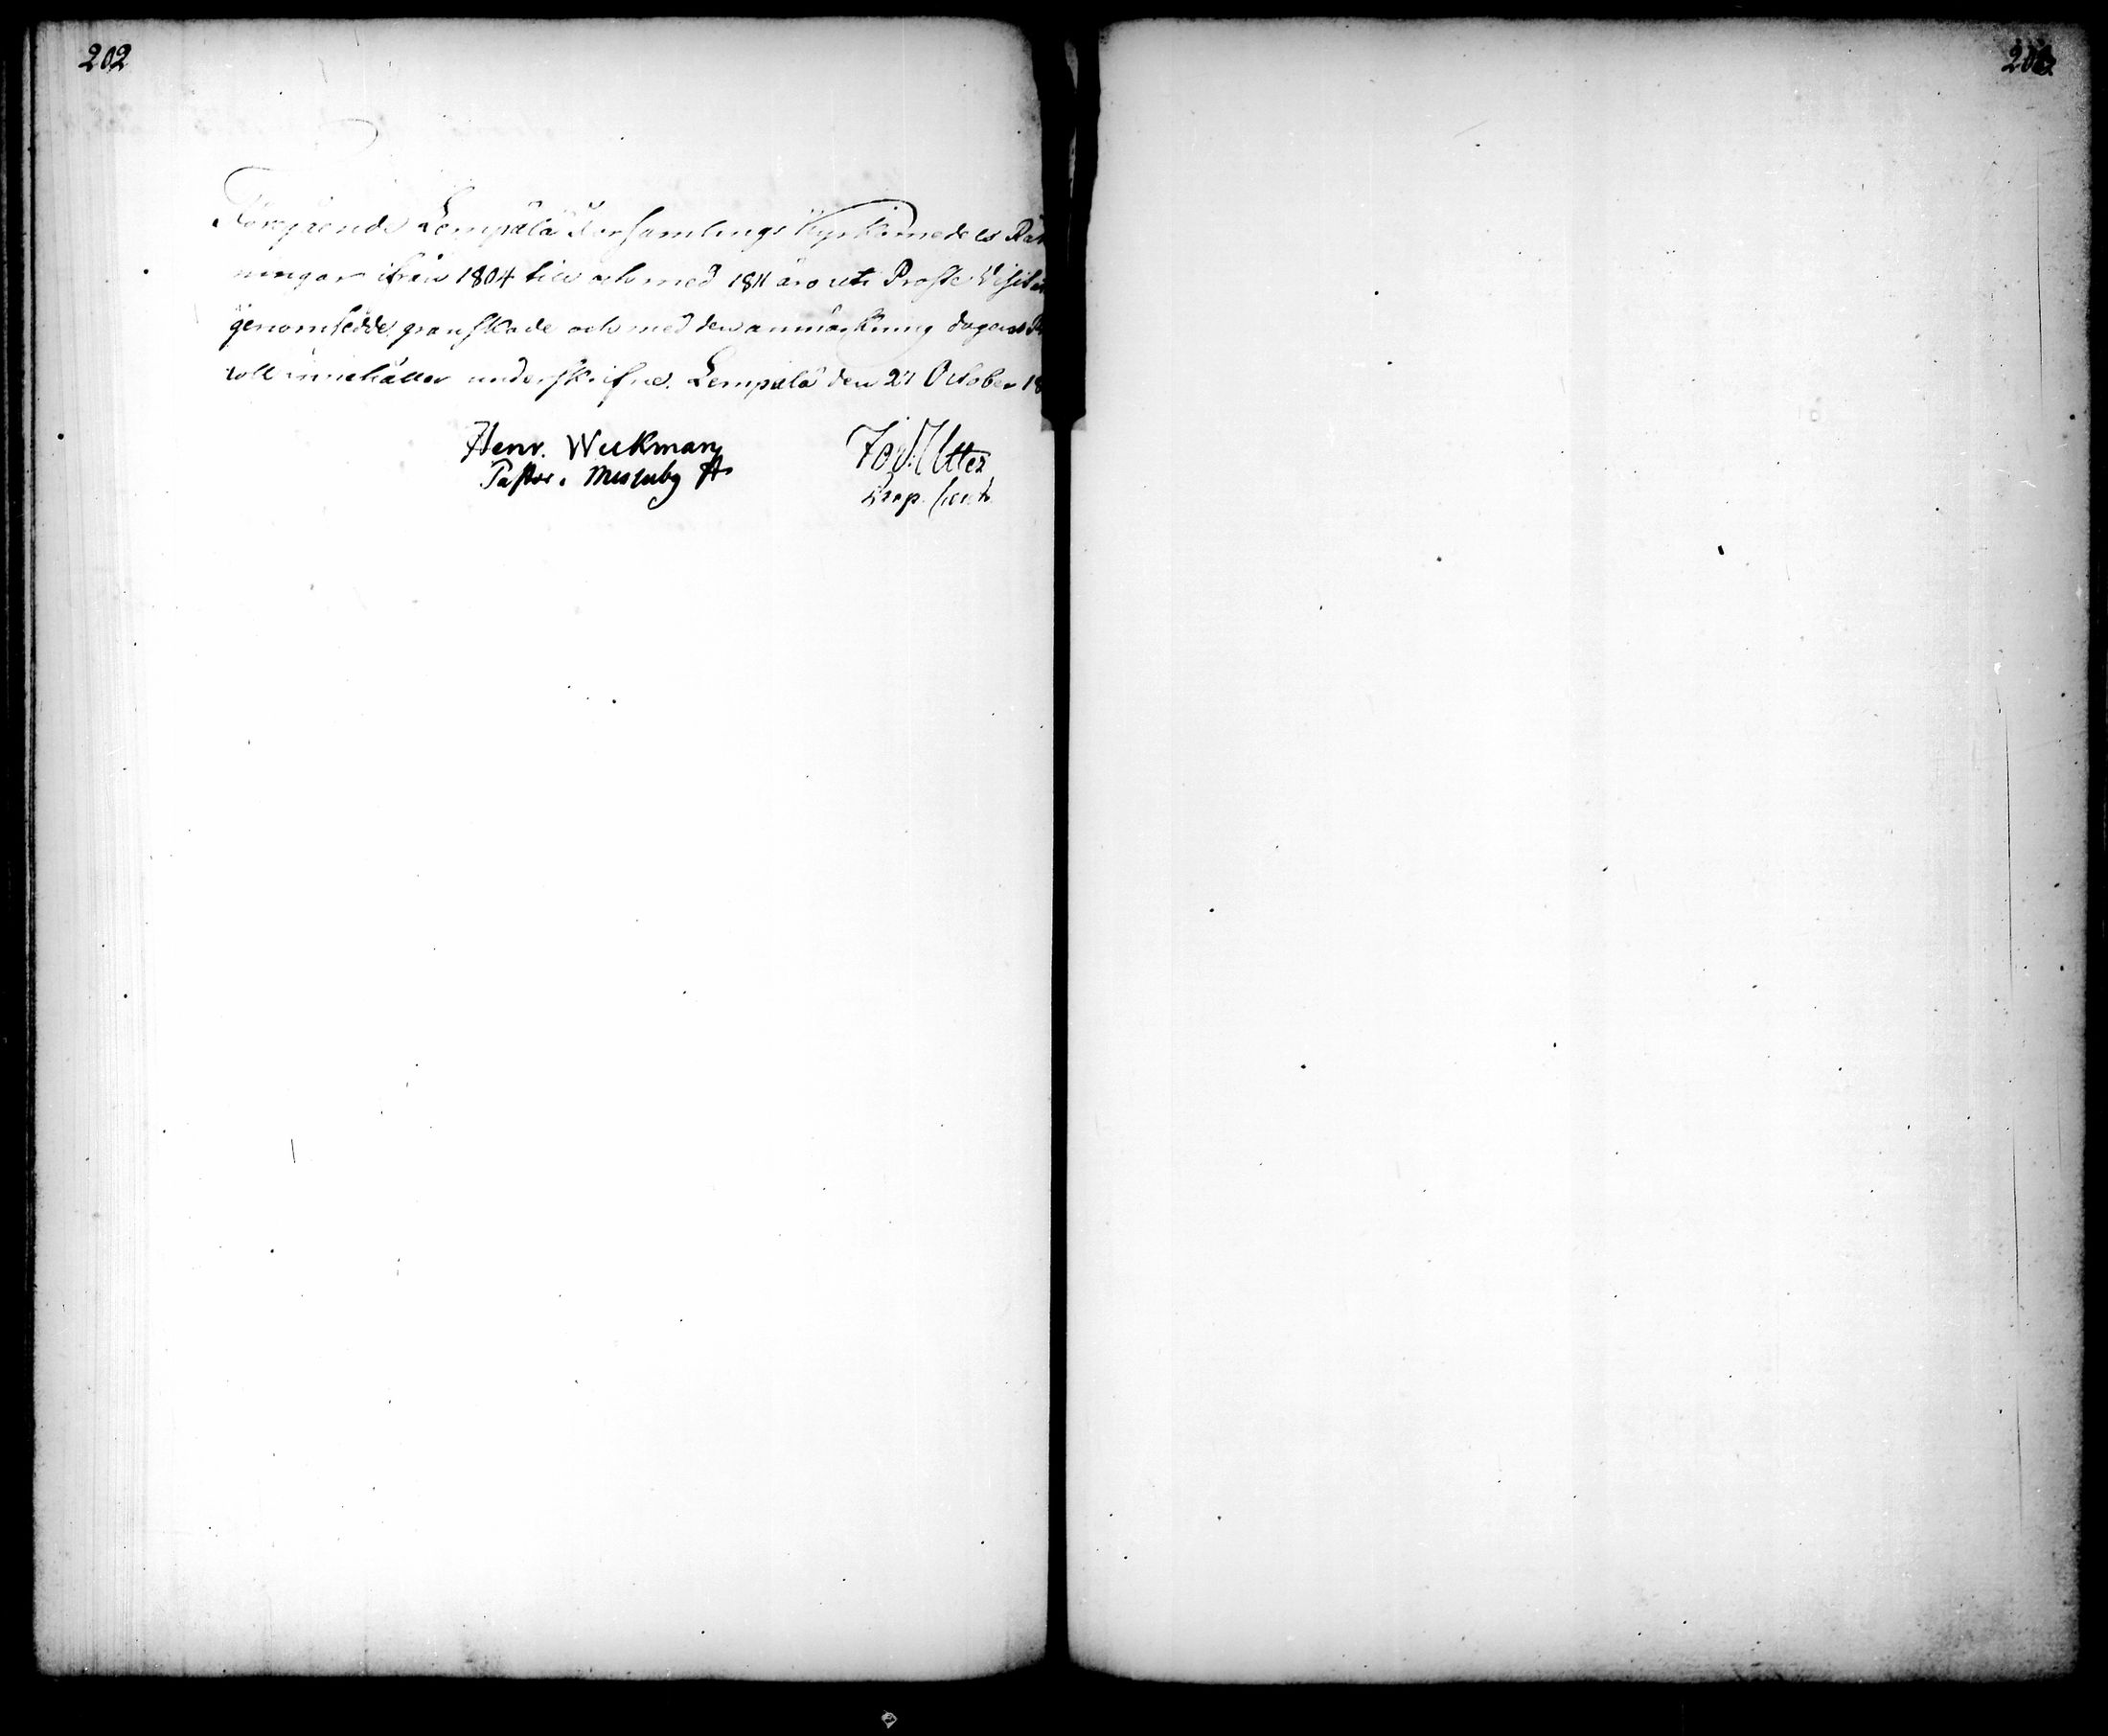 202
Föregående Lempälä Församlings Kyrkomedels Räk
ningar ifrån 1804 till och med 1811 äro uti Proste Visitat
genomsedde granskade och med den anmärkning dagens Pr
coll innehåller underskrifne. Lempälä den 27 October 18
Henr. Wickman
Pastor i Messuby
Utter